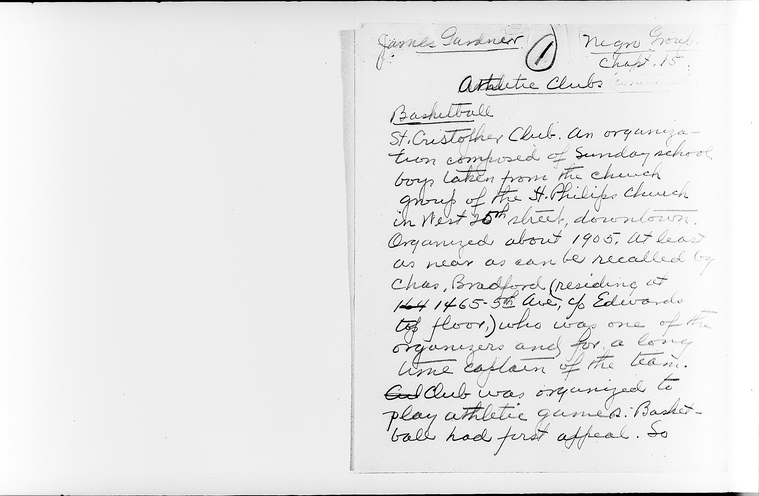 James Gardner
1
Negro Group.
Chapt. 15.
Athletic Clubs
Basketball
St. Cristopher Club. An organiza-
tion composed of Sunday school
boys taken from the church
group of the St. Philips Church
in West 25th street, downtown.
Organized about 1905, at least
as near as can be recalled by
Chas. Bradford (residing at
164 1465-5th Ave, c/o Edwards
top floor,) who was one of the
organizers and for a long
time captain of the team.
Club was organized to
play athletic games. Basket-
ball had first appeal. So